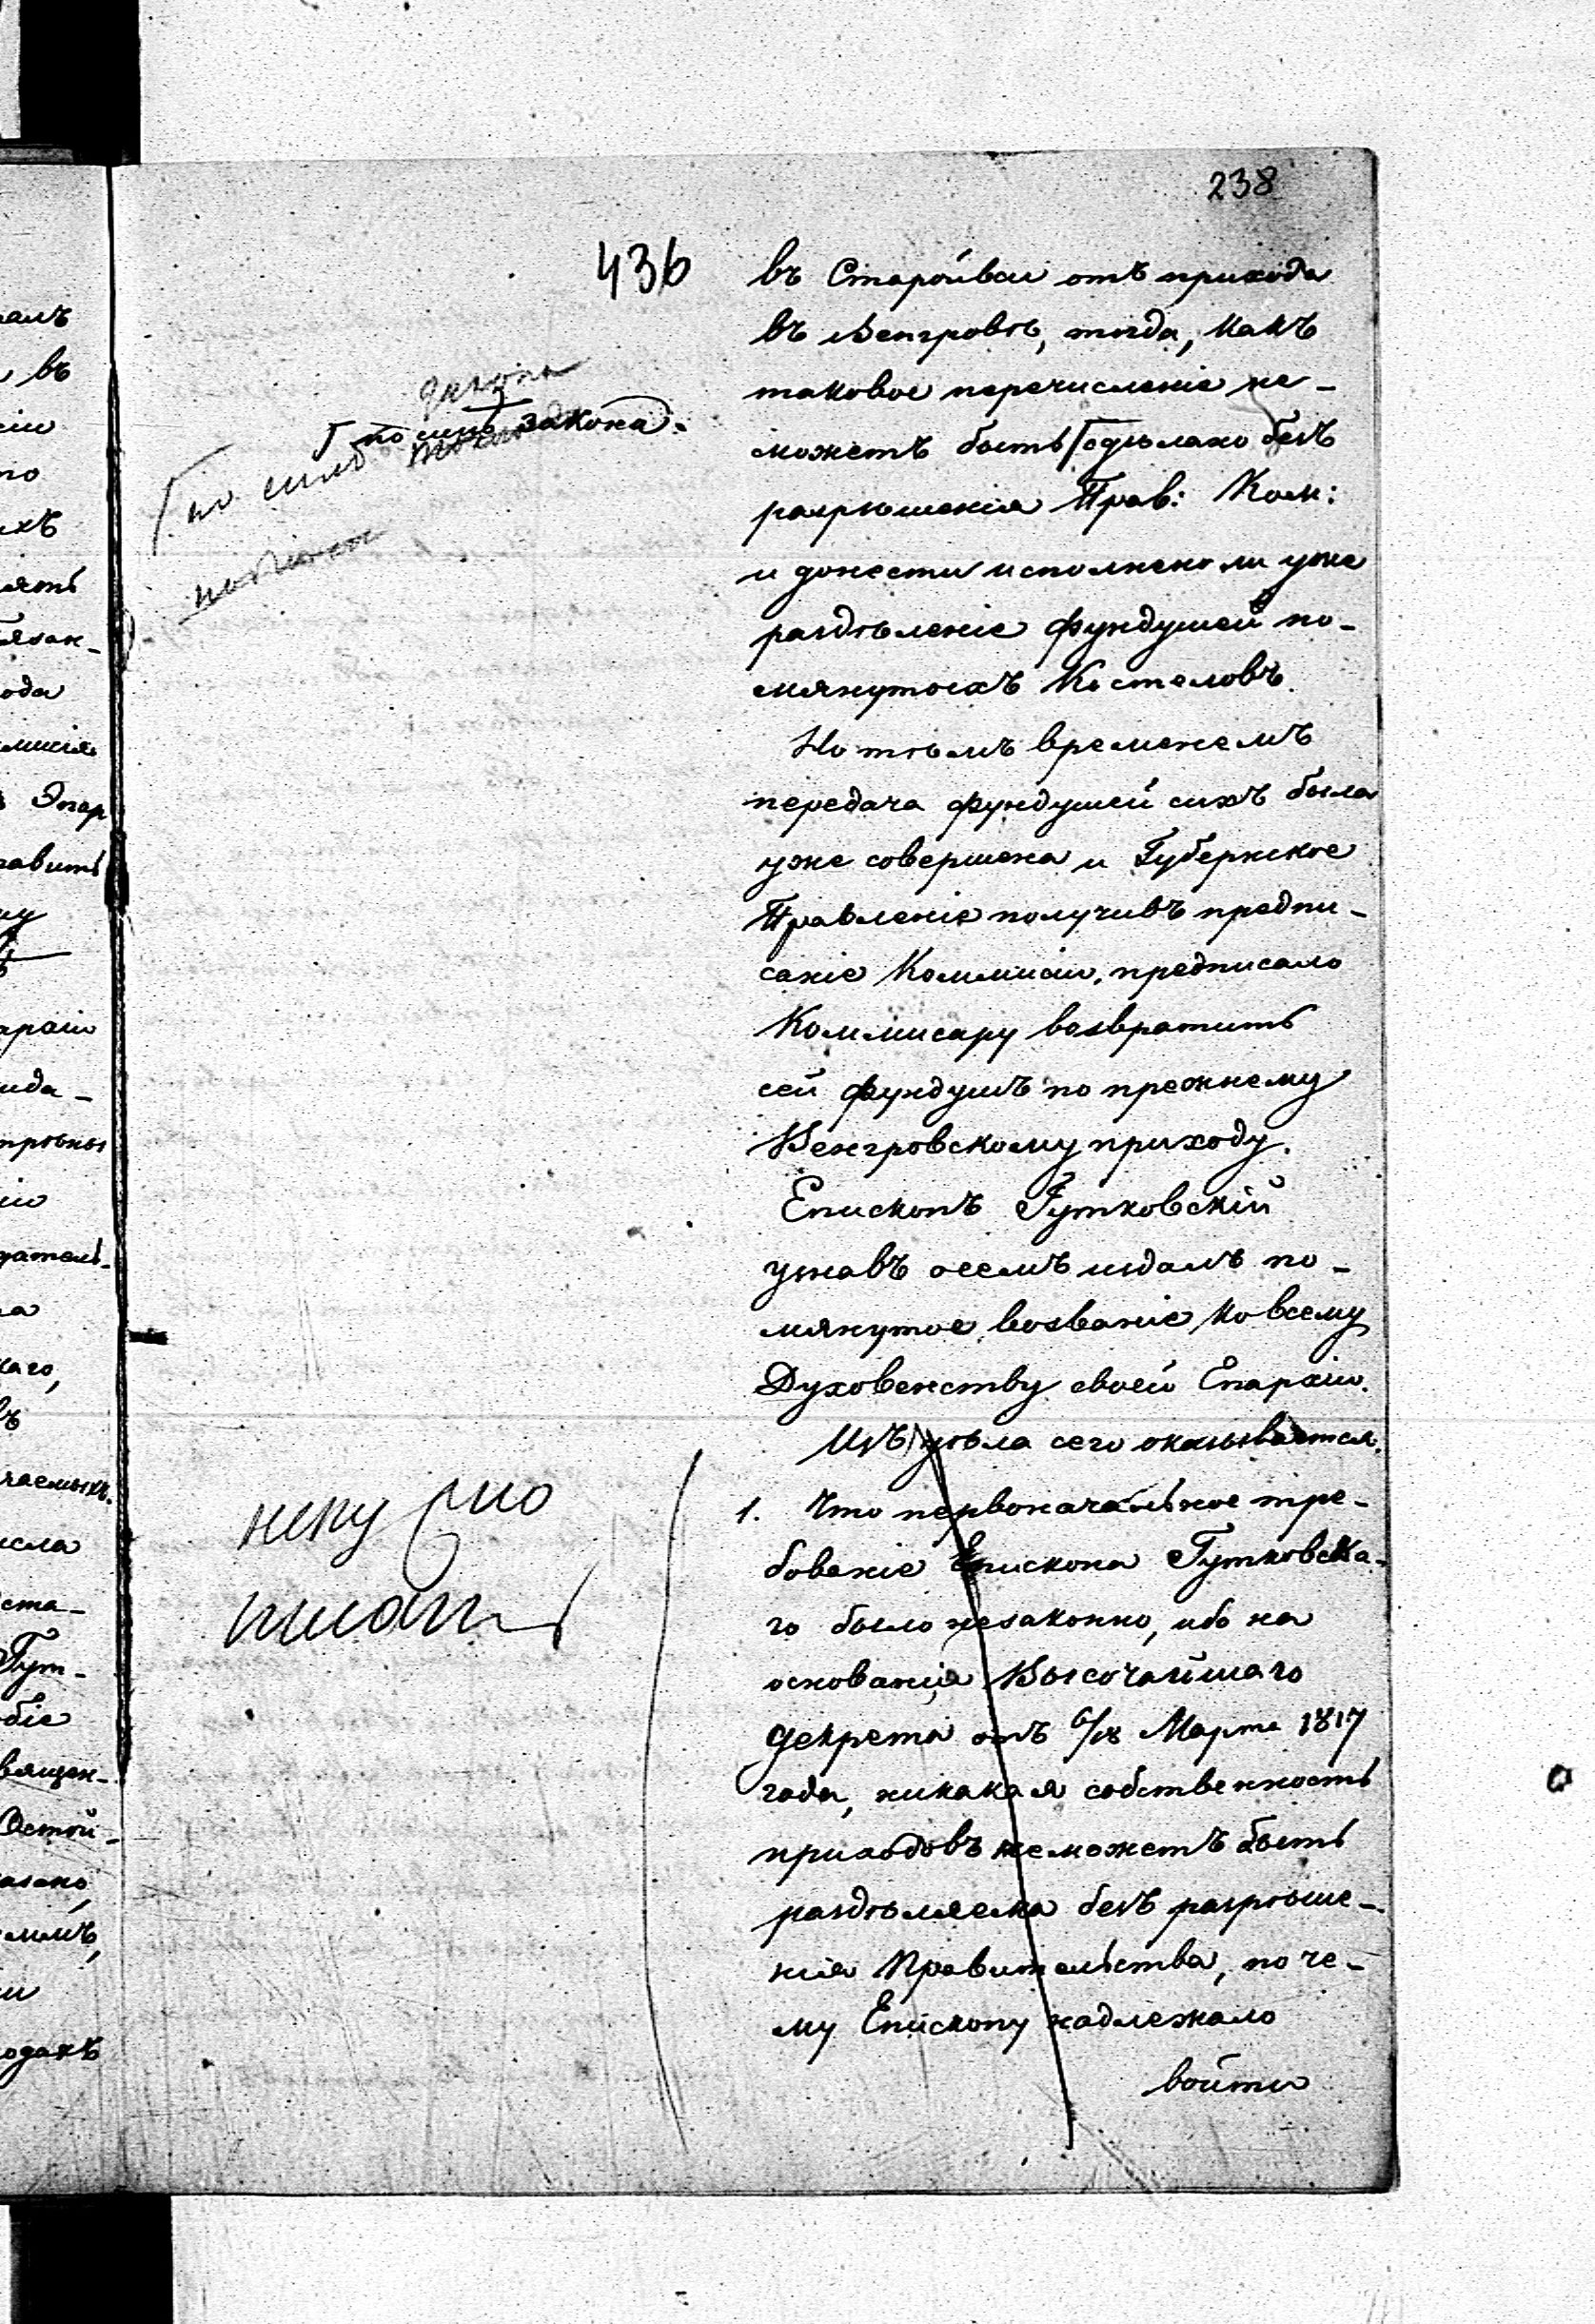 238
436
въ Старойвси отъ прихода
въ Венгровѣ, тогда, какъ
таковое перечисленіе не-
можетъ быть сдѣлано безъ
разрѣшенія Прав: Ком:
и донести исполнено ли уже
раздѣленіе фундушей по-
мянутыхъ Костеловъ.
Но тѣмъ временемъ
передача фундушей сихъ была
уже совершена и Губернское
Правленіе получивъ предпи-
саніе Коммисіи, предписало
Коммисару возвратить
сей фундушъ по прежнему
Венгровскому приходу.
Епископъ Гутковскій
узнавъ о семъ издалъ по-
мянутое воззваніе ко всему
Духовенству своей Епархіи.
Изъ дѣла сего оказывается.
1. Что первоначальное тре-
бованіе Епископа Гутковска-
го было незаконно, ибо на
основаніи Высочайшаго
декрета отъ 6/18 Марта 1817
года, никакая собственность
приходовъ не можетъ быть
раздѣляема безъ разрѣше-
нія Правительства, по че-
му Епископу надлежало
войти
закона
по силѣ закона.
по силѣ
ненужно
писать